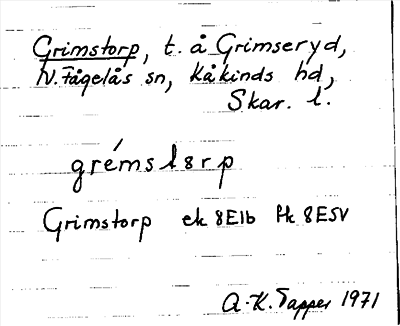 Grimstorp, t. å Grimseryd,
N. Fågelås sn, Kåkinds hd,
Skar. l.
grémstɔrp
Grimstorp ek 8E1b fk 8E5V
A.-K. Tapper 1971